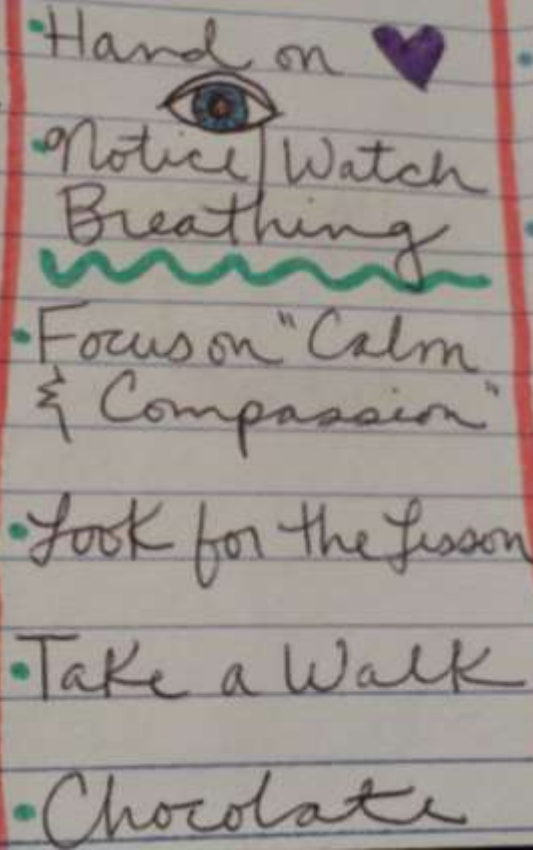 • Hand on 💜
• Notice/Watch
Breathing
• Focus on "Calm
& Compassion"
• Look for the Lesson
• Take a Walk
• Chocolate